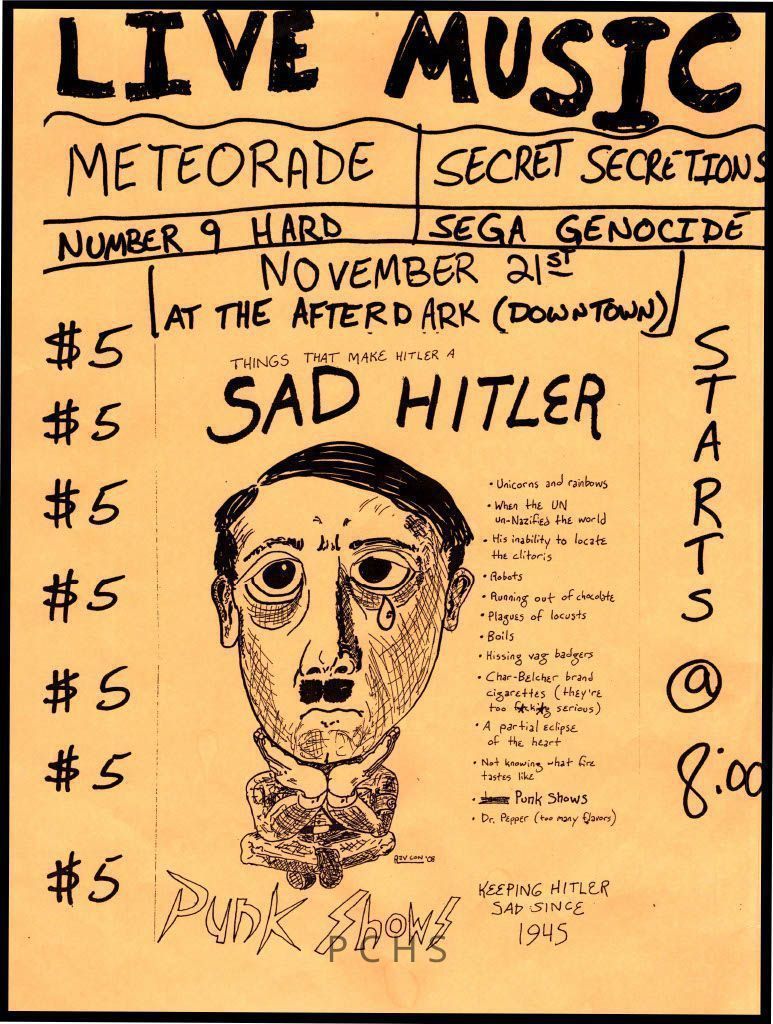 LIVE MUSIC
METEORADE
SECRET SECRETIONS
NUMBER 9 HARD
SEGA GENOCIDE
NOVEMBER 21ST
AT THE AFTERDARK (DOWNTOWN)
$5
$5
$5
$5
$5
$5
$5
THINGS THAT MAKE HITLER A
SAD HITLER
• Unicorns and rainbows
• When the UN
un-Nazified the world
• His inability to locate
the clitoris
• Robots
• Running out of chocolate
• Plagues of locusts
• Boils
• Hissing vag badgers
• Char-Belcher brand
cigarettes (they're
too f*ck*g serious)
• A partial eclipse
of the heart
• Not knowing what fire
tastes like
• Punk Shows
• Dr. Pepper (too many flavors)
REV CON '08
STARTS
@
8:00
Punk Shows
KEEPING HITLER
SAD SINCE
1945
PCHS